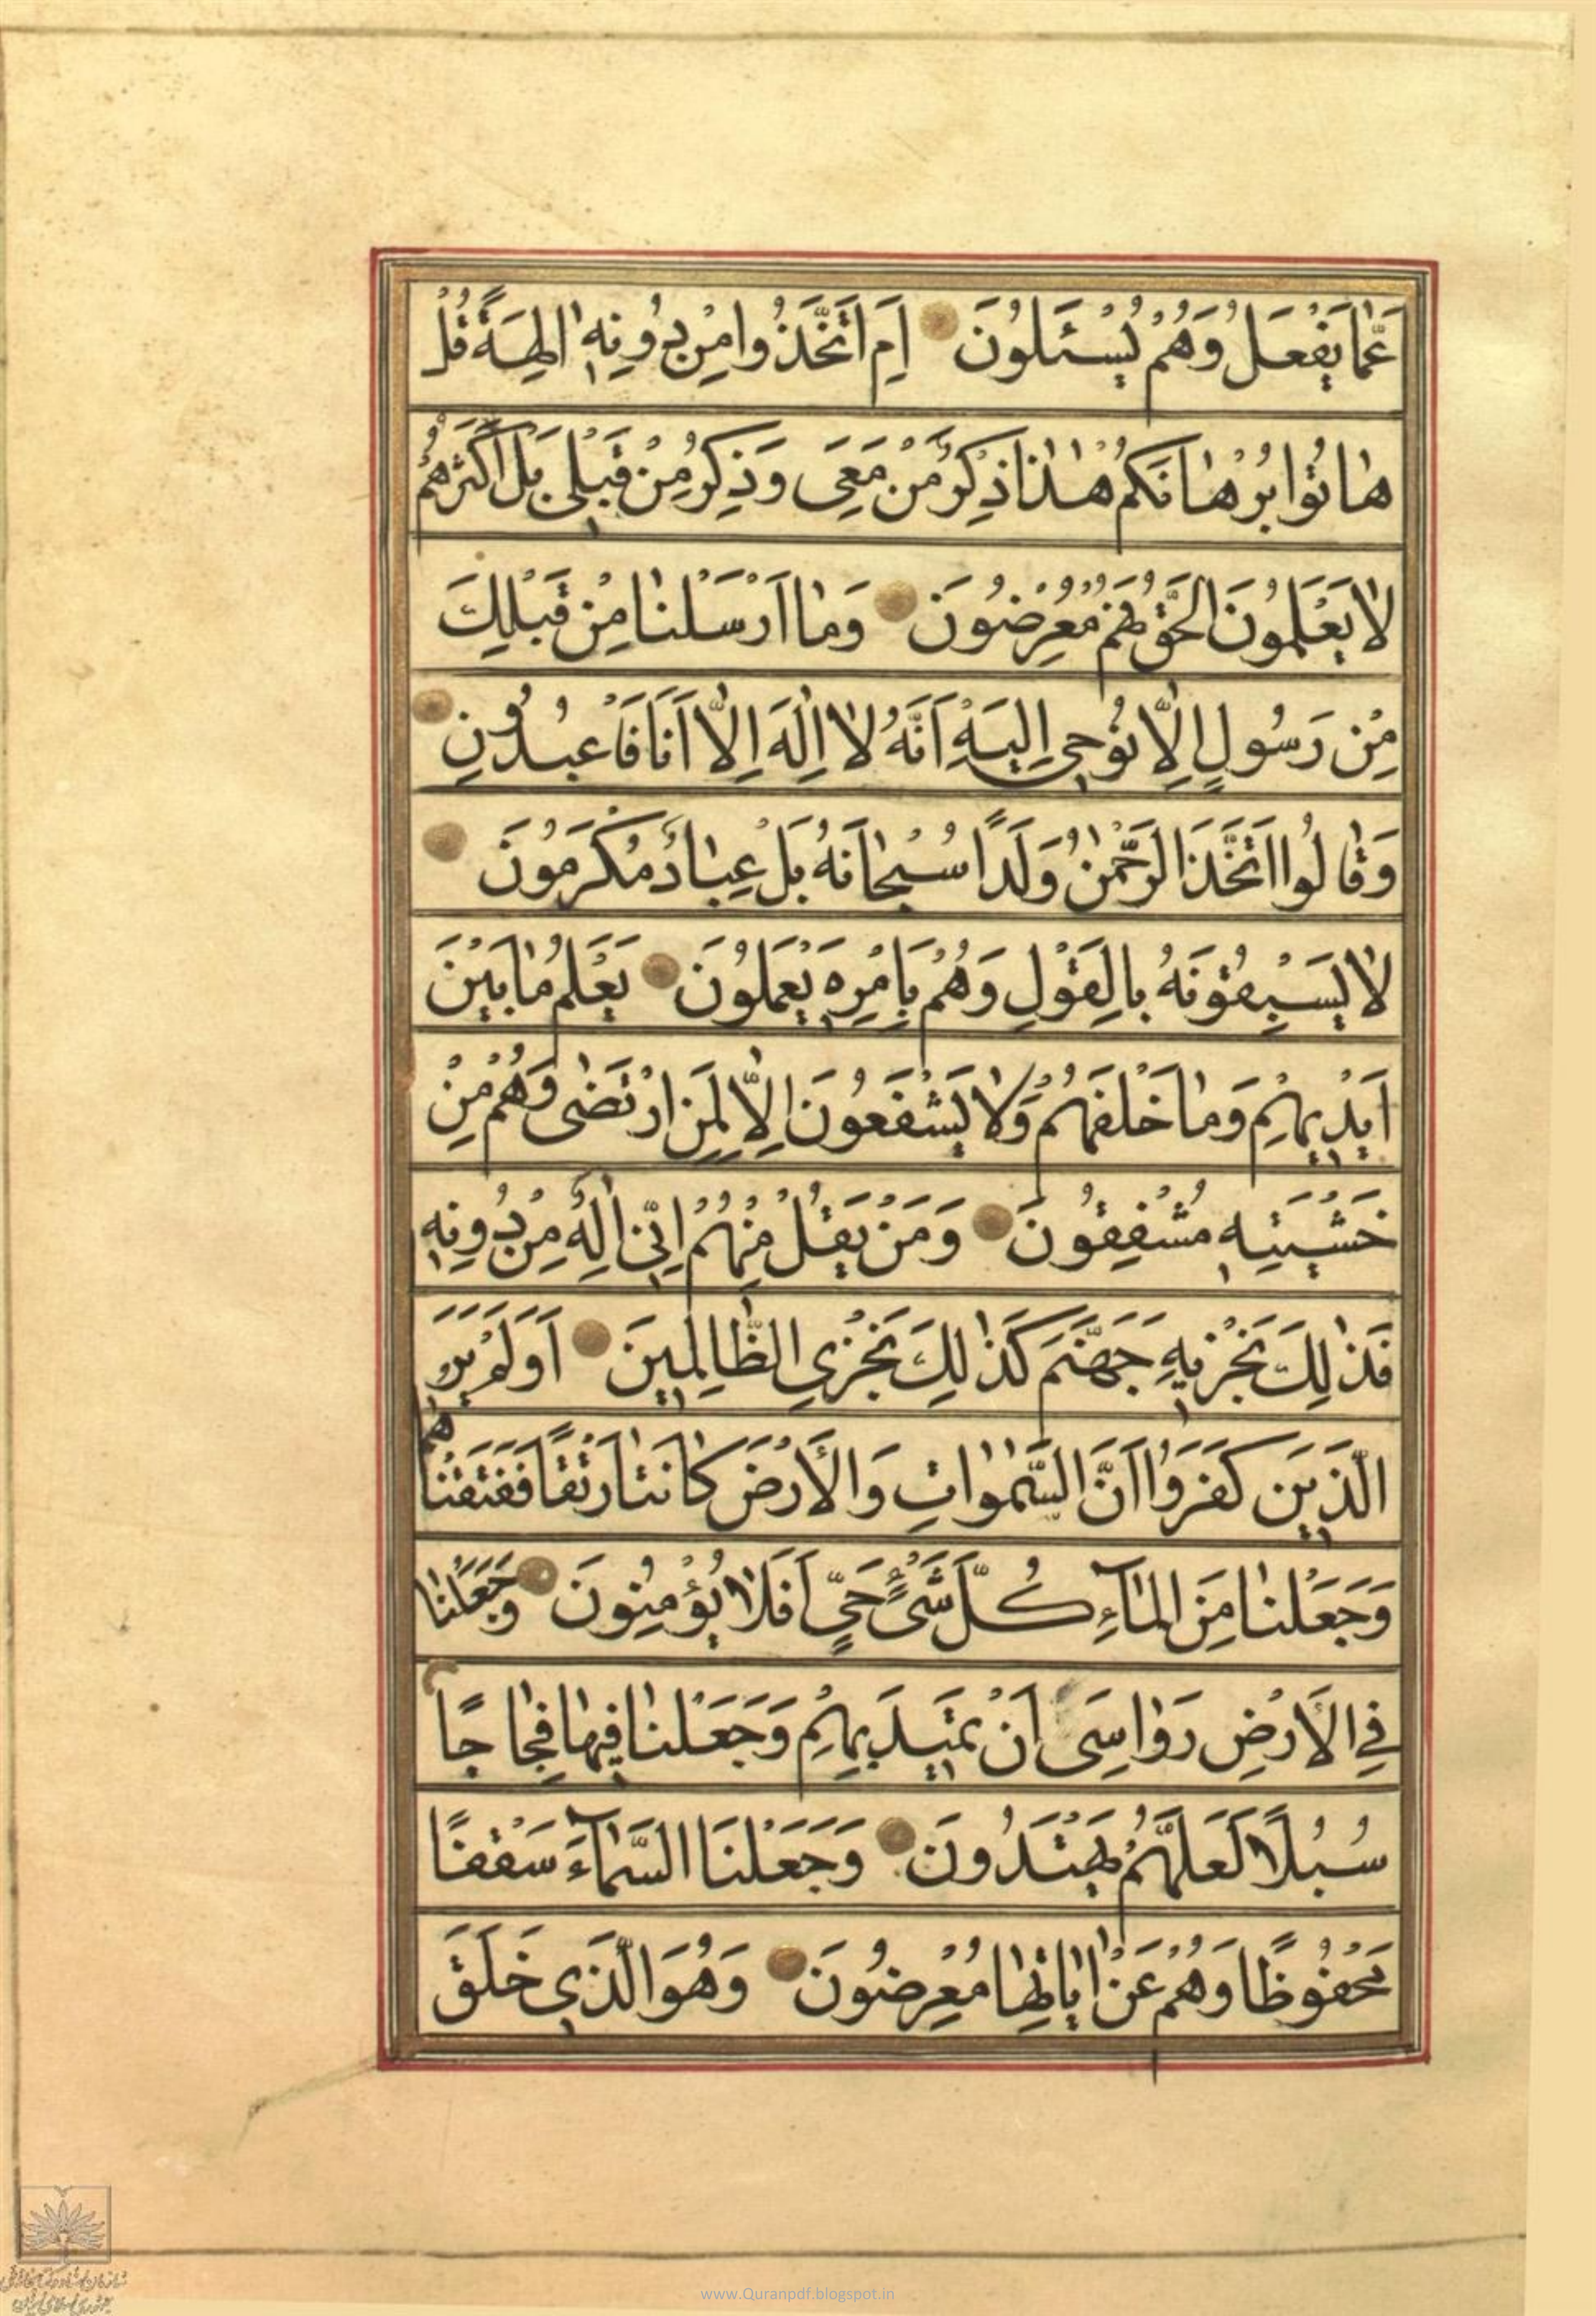 عَمّٰا يَفْعَلُ وَهُمْ يُسْئَلُونَ اَمِ اتَّخَذُوا مِنْ دُونِهٖ اٰلِهَةً قُلْ
هٰاتُوا بُرْهٰانَكُمْ هٰذٰا ذِكْرُ مَنْ مَعِىَ وَذِكْرُ مَنْ قَبْلِى بَلْ اَكْثَرُهُمْ
لٰا يَعْلَمُونَ الْحَقَّ فَهُمْ مُعْرِضُونَ وَمٰا اَرْسَلْنٰا مِنْ قَبْلِكَ
مِنْ رَسُولٍ اِلّٰا نُوحِى اِلَيْهِ اَنَّهُ لٰا اِلٰهَ اِلّٰا اَنَا فَاعْبُدُونِ
وَقٰالُوا اتَّخَذَ الرَّحْمٰنُ وَلَدًا سُبْحٰانَهُ بَلْ عِبٰادٌ مُكْرَمُونَ
لٰا يَسْبِقُونَهُ بِالْقَوْلِ وَهُمْ بِاَمْرِهٖ يَعْمَلُونَ يَعْلَمُ مٰا بَيْنَ
اَيْدِيهِمْ وَمٰا خَلْفَهُمْ وَلٰا يَشْفَعُونَ اِلّٰا لِمَنِ ارْتَضٰى وَهُمْ مِنْ
خَشْيَتِهٖ مُشْفِقُونَ وَمَنْ يَقُلْ مِنْهُمْ اِنّٖى اِلٰهٌ مِنْ دُونِهٖ
فَذٰلِكَ نَجْزٖيهِ جَهَنَّمَ كَذٰلِكَ نَجْزِى الظّٰالِمٖينَ اَوَلَمْ يَرَ
الَّذٖينَ كَفَرُوا اَنَّ السَّمٰوٰاتِ وَالْاَرْضَ كٰانَتٰا رَتْقًا فَفَتَقْنٰا هُمٰا
وَجَعَلْنٰا مِنَ الْمٰاۤءِ كُلَّ شَىْءٍ حَىٍّ اَفَلٰا يُؤْمِنُونَ وَجَعَلْنٰا
فِى الْاَرْضِ رَوٰاسِىَ اَنْ تَمٖيدَ بِهِمْ وَجَعَلْنٰا فٖيهٰا فِجٰاجًا
سُبُلًا لَعَلَّهُمْ يَهْتَدُونَ وَجَعَلْنَا السَّمٰاۤءَ سَقْفًا
مَحْفُوظًا وَهُمْ عَنْ اٰيٰاتِهٰا مُعْرِضُونَ وَهُوَ الَّذٖى خَلَقَ
www.Quranpdf.blogspot.in